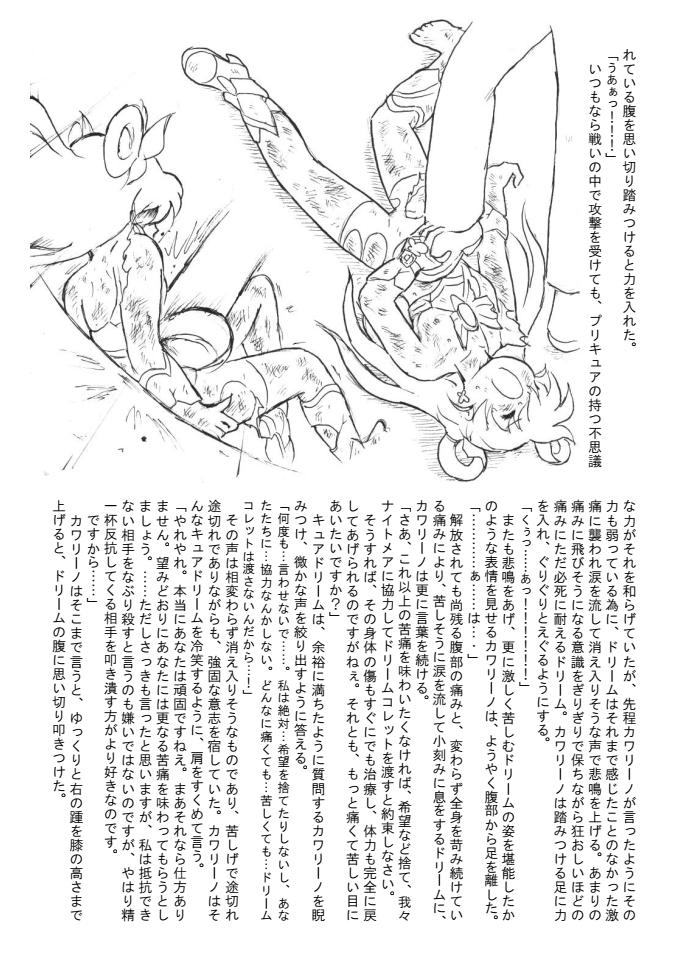 れている腹を思い切り踏みつけると力を入れた。
「うあぁっ！！！」
いつもなら戦いの中で攻撃を受けても、プリキュアの持つ不思議
な力がそれを和らげていたが、先程カワリーノが言ったようにその
力も弱っている為に、ドリームはそれまで感じたことのなかった激
痛に襲われ涙を流して消え入りそうな声で悲鳴を上げる。あまりの
痛みに飛びそうになる意識をぎりぎりで保ちながら狂おしいほどの
痛みにただ必死に耐えるドリーム。カワリーノは踏みつける足に力
を入れ、ぐりぐりとえぐるようにする。
「くぅっ……あっ！！！！！！」
またも悲鳴をあげ、更に激しく苦しむドリームの姿を堪能したか
のような表情を見せるカワリーノは、ようやく腹部から足を離した。
「…………あ……は…．」
解放されても尚残る腹部の痛みと、変わらず全身を苛み続けてい
る痛みにより、苦しそうに涙を流して小刻みに息をするドリームに、
カワリーノは更に言葉を続ける。
「さあ、これ以上の苦痛を味わいたくなければ、希望など捨て、我々
ナイトメアに協力してドリームコレットを渡すと約束しなさい。
そうすれば、その身体の傷もすぐにでも治療し、体力も完全に戻
してあげられるのですがねぇ。それとも、もっと痛くて苦しい目に
あいたいですか？」
キュアドリームは、余裕に満ちたように質問するカワリーノを睨
みつけ、微かな声を絞り出すように答える。
「何度も…言わせないで……。私は絶対…希望を捨てたりしないし、あな
たたちに…協力なんかしない。どんなに痛くても…苦しくても…ドリーム
コレットは渡さないんだから…！」
その声は相変わらず消え入りそうなものであり、苦しげで途切れ
途切れでありながらも、強固な意志を宿していた。カワリーノはそ
んなキュアドリームを冷笑するように、肩をすくめて言う。
「やれやれ。本当にあなたは頑固ですねえ。まあそれなら仕方あり
ません。望みどおりにあなたには更なる苦痛を味わってもらうとし
ましょう。……ただしさっきも言ったと思いますが、私は抵抗でき
ない相手をなぶり殺すと言うのも嫌いではないのですが、やはり精
一杯反抗してくる相手を叩き潰す方がより好きなのです。
ですから……」
カワリーノはそこまで言うと、ゆっくりと右の踵を膝の高さまで
上げると、ドリームの腹に思い切り叩きつけた。